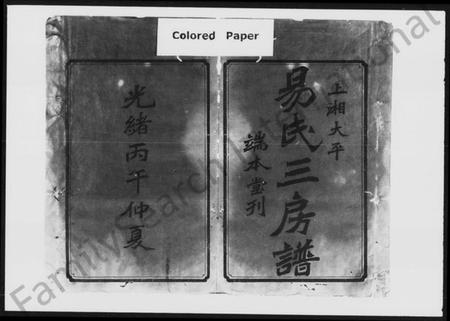 Colored Paper
上湘大平
易氏三房譜
端本堂刊
光緒丙午仲夏
FamilySearch International